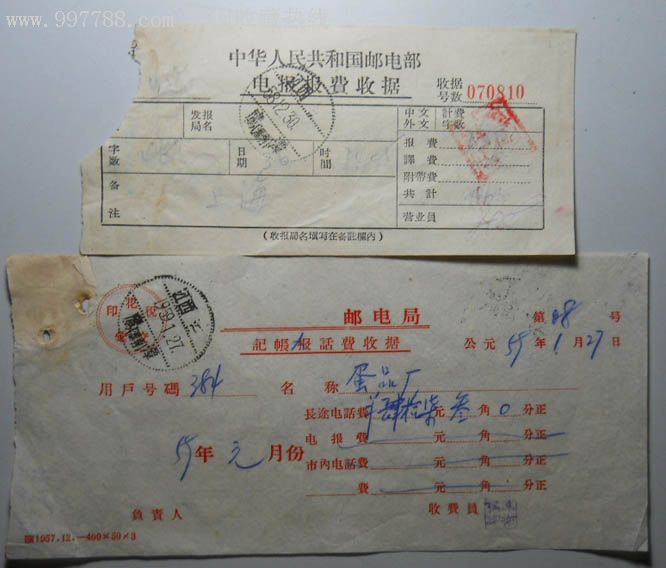 www.997788.com
中华人民共和国邮电部
电报报费收据
收据号数 070810
58.12.30.
江西
发报局名
中文 計費
外文 字数
字数
日期 30
时間
报費
譯費
附带費
共計
备注 上海
营业员
(收报局名填写在备註欄内)
印花税
江西
1959.1.27.
邮电局
第 08 号
記帳 报話費收据
公元 59 年 1 月 27 日
用戶号碼 384
名称 蛋品厂
長途电話費 肆拾柒 元 叁 角 0 分正
电报費 元 角 分正
59 年 元 月份
市內电話費 元 角 分正
費 元 角 分正
負責人
收費員
1957.12.—400×50×3